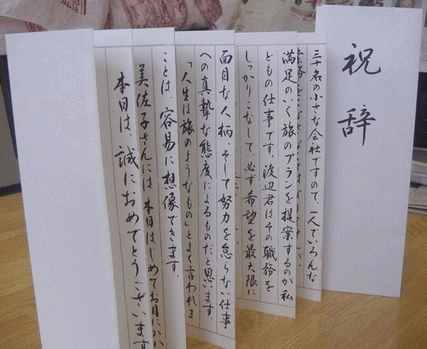 祝辞
三十名の小さな会社ですので、一人でいろんな
満足のいく旅のプランを提案するのが私
どもの仕事です。渡辺君はその職務を
しっかりこなして、必ず希望を最大限に
面目な人柄、そして努力を怠らない仕事
への真摯な態度によるものだと思います。
「人生は旅のようなもの」とよく言われま
ことは、容易に想像できます。
美佐子さんには本日はじめてお目にかかり
本日は、誠におめでとうございます